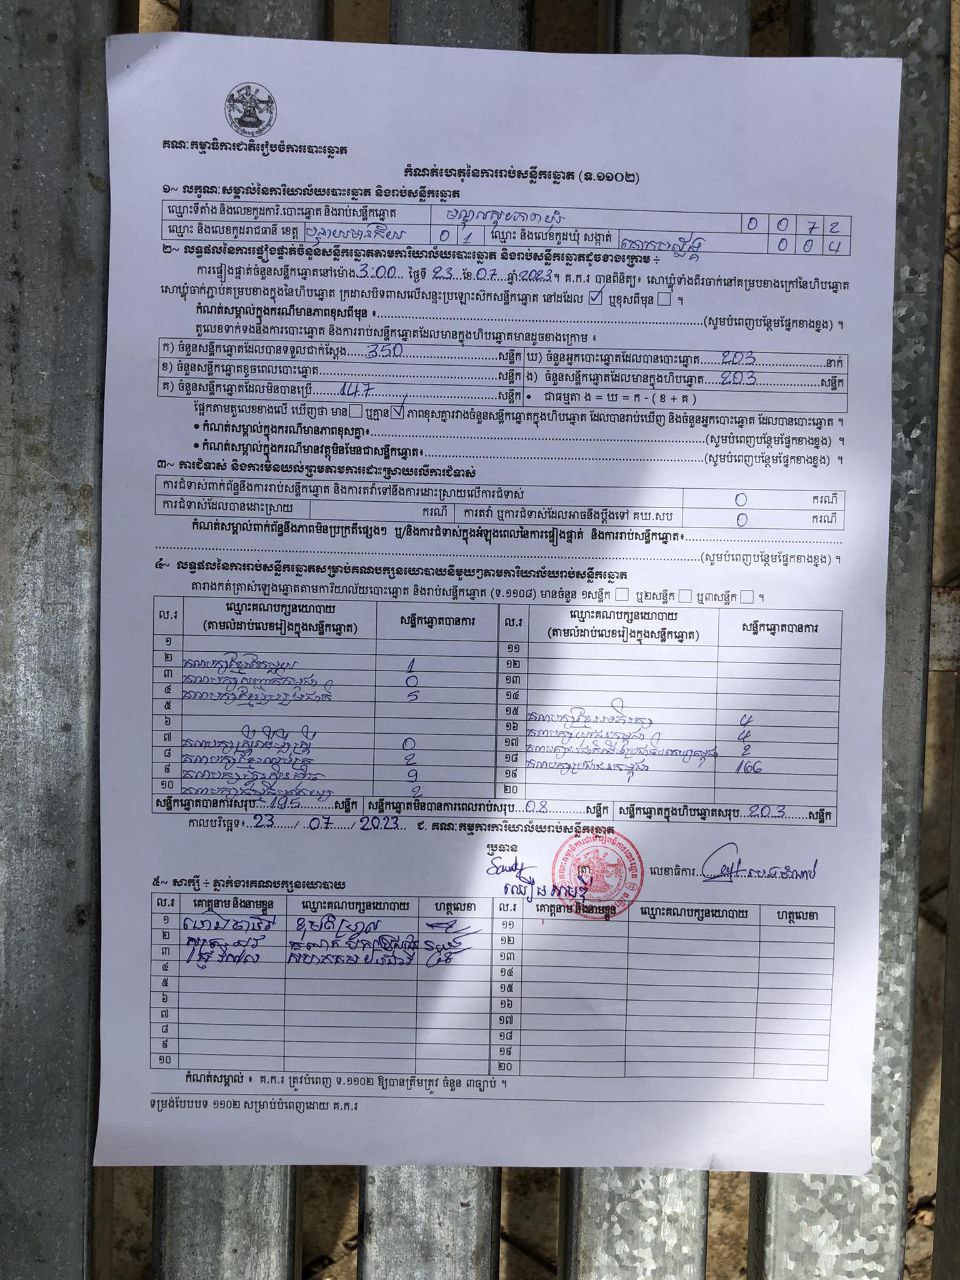 គណៈកម្មាធិការជាតិរៀបចំការបោះឆ្នោត
កំណត់ហេតុនៃការរាប់សន្លឹកឆ្នោត (ទ.១១០២)
១~ លក្ខណៈសម្គាល់នៃការិយាល័យបោះឆ្នោត និងរាប់សន្លឹកឆ្នោត
ឈ្មោះទីតាំង និងលេខកូដការិ.បោះឆ្នោត និងរាប់សន្លឹកឆ្នោត 0 0 7 2
ឈ្មោះ និងលេខកូដរាជធានី ខេត្ត បន្ទាយមានជ័យ 0 1 ឈ្មោះ និងលេខកូដឃុំ សង្កាត់ 0 0 4
២~ លទ្ធផលនៃការផ្ទៀងផ្ទាត់ចំនួនសន្លឹកឆ្នោតតាមការិយាល័យបោះឆ្នោត និងរាប់សន្លឹកឆ្នោតដូចខាងក្រោម ÷
ការផ្ទៀងផ្ទាត់ចំនួនសន្លឹកឆ្នោតនៅម៉ោង 3:00 ថ្ងៃទី 23 ខែ 07 ឆ្នាំ 2023។ គ.ក.រ បានពិនិត្យ៖ សោឃ្លុំទាំងពីរចាក់នៅគម្របខាងក្រៅនៃហិបឆ្នោត
សោឃ្លុំចាក់ភ្ជាប់គម្របខាងក្នុងនៃហិបឆ្នោត ក្រដាសបិទពាសលើសន្ទះប្រឡោះស៊កសន្លឹកឆ្នោត នៅដដែល ☑ ឬខុសពីមុន ☐ ។
កំណត់សម្គាល់ក្នុងករណីមានភាពខុសពីមុន ៖ (សូមបំពេញបន្ថែមផ្នែកខាងខ្នង) ។
តួលេខទាក់ទងនឹងការបោះឆ្នោត និងការរាប់សន្លឹកឆ្នោតដែលមានក្នុងហិបឆ្នោតមានដូចខាងក្រោម ៖
ក) ចំនួនសន្លឹកឆ្នោតដែលបានទទួលជាក់ស្តែង 350 សន្លឹក ឃ) ចំនួនអ្នកបោះឆ្នោតដែលបានបោះឆ្នោត 203 នាក់
ខ) ចំនួនសន្លឹកឆ្នោតខូចពេលបោះឆ្នោត សន្លឹក ង) ចំនួនសន្លឹកឆ្នោតដែលមានក្នុងហិបឆ្នោត 203 សន្លឹក
គ) ចំនួនសន្លឹកឆ្នោតដែលមិនបានប្រើ 147 សន្លឹក • ជាធម្មតា ង = ឃ = ក - ( ខ + គ )
ផ្អែកតាមតួលេខខាងលើ ឃើញថា មាន ☐ ឬគ្មាន ☑ ភាពខុសគ្នារវាងចំនួនសន្លឹកឆ្នោតក្នុងហិបឆ្នោត ដែលបានរាប់ឃើញ និងចំនួនអ្នកបោះឆ្នោត ដែលបានបោះឆ្នោត ។
• កំណត់សម្គាល់ក្នុងករណីមានភាពខុសគ្នា៖ (សូមបំពេញបន្ថែមផ្នែកខាងខ្នង) ។
• កំណត់សម្គាល់ក្នុងករណីមានវត្ថុមិនមែនជាសន្លឹកឆ្នោត៖ (សូមបំពេញបន្ថែមផ្នែកខាងខ្នង) ។
៣~ ការជំទាស់ និងការមិនយល់ព្រមតាមការដោះស្រាយលើការជំទាស់
ការជំទាស់ពាក់ព័ន្ធនឹងការរាប់សន្លឹកឆ្នោត និងការតវ៉ាទៅនឹងការដោះស្រាយលើការជំទាស់ 0 ករណី
ការជំទាស់ដែលបានដោះស្រាយ ករណី ការតវ៉ា ឬការជំទាស់ដែលអាចនឹងប្តឹងទៅ គឃ.សប 0 ករណី
កំណត់សម្គាល់ពាក់ព័ន្ធនឹងភាពមិនប្រក្រតីផ្សេងៗ ឬ/និងការជំទាស់ក្នុងអំឡុងពេលនៃការផ្ទៀងផ្ទាត់ និងការរាប់សន្លឹកឆ្នោត៖
(សូមបំពេញបន្ថែមផ្នែកខាងខ្នង) ។
៤~ លទ្ធផលនៃការរាប់សន្លឹកឆ្នោតសម្រាប់គណបក្សនយោបាយនីមួយៗតាមការិយាល័យរាប់សន្លឹកឆ្នោត
តារាងកត់ត្រាសំឡេងឆ្នោតតាមការិយាល័យបោះឆ្នោត និងរាប់សន្លឹកឆ្នោត (ទ.១១០៨) មានចំនួន ១សន្លឹក ☐ ឬ២សន្លឹក ☐ ឬ៣សន្លឹក ☐ ។
ល.រ ឈ្មោះគណបក្សនយោបាយ (តាមលំដាប់លេខរៀងក្នុងសន្លឹកឆ្នោត) សន្លឹកឆ្នោតបានការ ល.រ ឈ្មោះគណបក្សនយោបាយ (តាមលំដាប់លេខរៀងក្នុងសន្លឹកឆ្នោត) សន្លឹកឆ្នោតបានការ
១ ១១
២ 1 ១២
៣ 0 ១៣
៤ 5 ១៤
៥ ១៥ 4
៦ ១៦ 4
៧ 0 ១៧ 2
៨ 2 ១៨ គណបក្សប្រជាជនកម្ពុជា 166
៩ 9 ១៩
១០ 2 ២០
សន្លឹកឆ្នោតបានការសរុប 195 សន្លឹក សន្លឹកឆ្នោតមិនបានការពេលរាប់សរុប 08 សន្លឹក សន្លឹកឆ្នោតក្នុងហិបឆ្នោតសរុប 203 សន្លឹក
កាលបរិច្ឆេទ៖ 23 / 07 / 2023 ជ. គណៈកម្មការការិយាល័យរាប់សន្លឹកឆ្នោត
ប្រធាន
ត្រា លេខាធិការ
៥~ សាក្សី ÷ ភ្នាក់ងារគណបក្សនយោបាយ
ល.រ គោត្តនាម និងនាមខ្លួន ឈ្មោះគណបក្សនយោបាយ ហត្ថលេខា ល.រ គោត្តនាម និងនាមខ្លួន ឈ្មោះគណបក្សនយោបាយ ហត្ថលេខា
១ ១១
២ ១២
៣ ១៣
៤ ១៤
៥ ១៥
៦ ១៦
៧ ១៧
៨ ១៨
៩ ១៩
១០ ២០
កំណត់សម្គាល់ ៖ គ.ក.រ ត្រូវបំពេញ ទ.១១០២ ឱ្យបានត្រឹមត្រូវ ចំនួន ៣ច្បាប់ ។
ទម្រង់បែបបទ ១១០២ សម្រាប់បំពេញដោយ គ.ក.រ